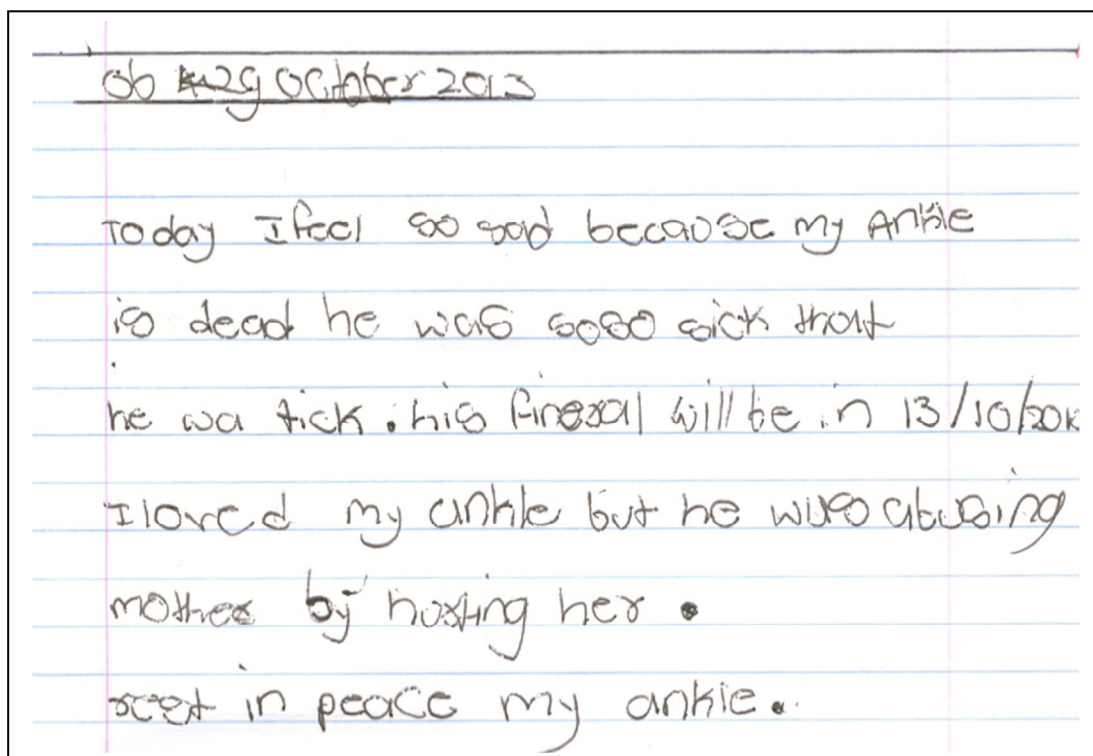 06 October 2013
Today I feel so sad because my Ankle
is dead he was soso sick that
he wa tick. his fineral will be in 13/10/201
I loved my ankle but he was abusing
mother by hurting her.
rest in peace my ankle.